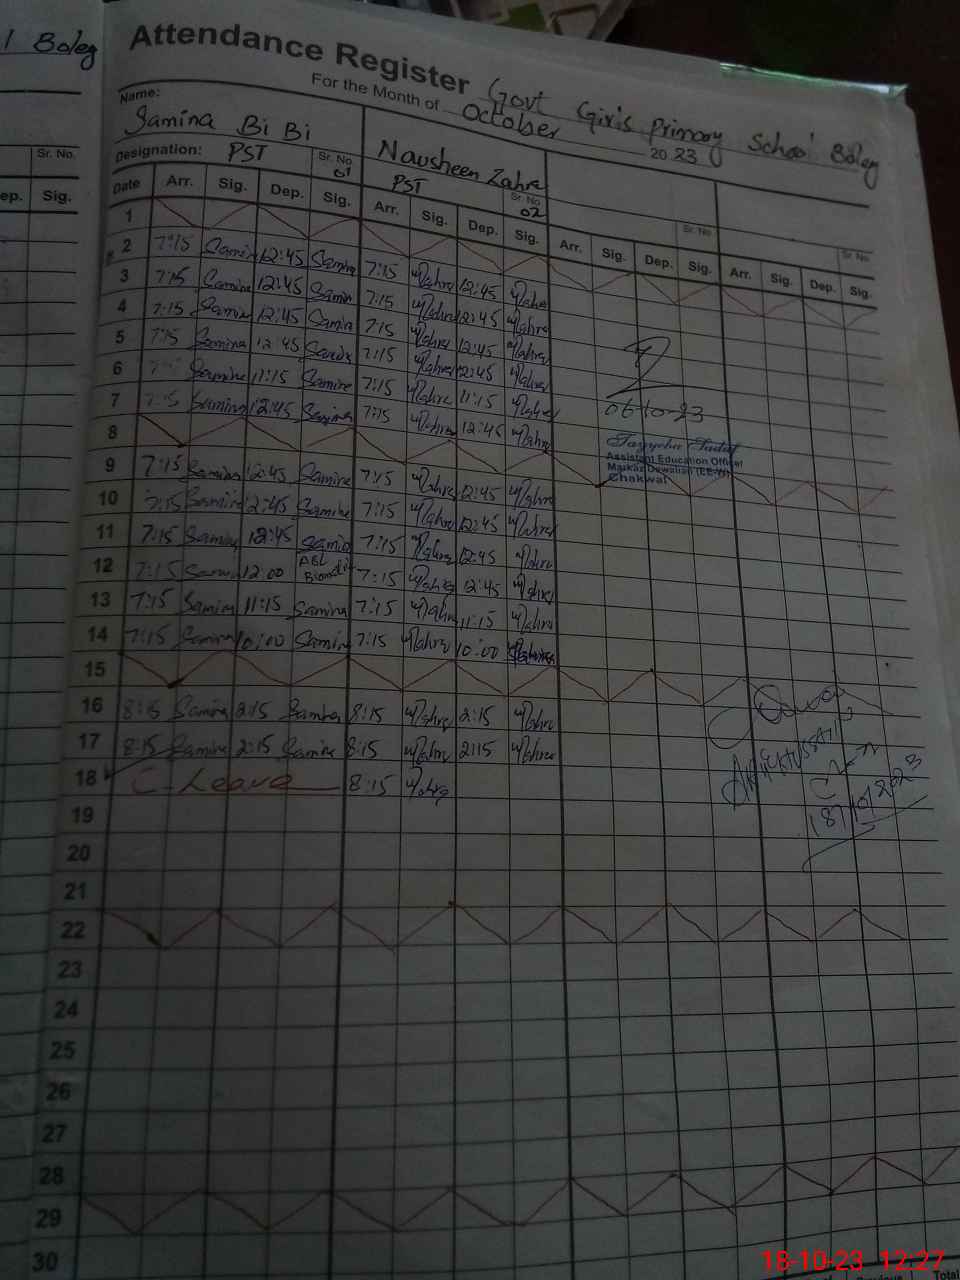 l Boleg
Attendance Register Govt Girls Primary School Boleg
For the Month of October 2023
Name: Samina Bi Bi Nousheen Zahra
Designation: PST Sr. No. 01 PST Sr. No. 02 Sr. No. Sr. No.
Sr. No.
ep. Sig.
Date Arr. Sig. Dep. Sig. Arr. Sig. Dep. Sig. Arr. Sig. Dep. Sig. Arr. Sig. Dep. Sig.
1
2 7:15 Samina 12:45 Samina 7:15 Zahra 12:45 Zahra
3 7:15 Samina 12:45 Samin 7:15 Zahra 12:45 Zahra
4 7:15 Samin 12:45 Samin 7:15 Zahra 12:45 Zahra
5 7:15 Samina 12:45 Samina 7:15 Zahra 12:45 Zahra
6 Samina 11:15 Samina 7:15 Zahra 11:15 Zahra
06-10-23
7 7:15 Samina 12:45 Samina 7:15 Zahra 12:45 Zahra
8
Assistant Education Officer
Markaz Dewalian (EE-W)
Chakwal
9 7:15 Samina 12:45 Samina 7:15 Zahra 12:45 Zahra
10 7:15 Samina 12:45 Samina 7:15 Zahra 12:45 Zahra
11 7:15 Samina 12:45 Samia 7:15 Zahra 12:45 Zahra
12 7:15 Samin 12:00 7:15 Zahra 12:45 Zahra
13 7:15 Samina 11:15 Samina 7:15 Zahra 11:15 Zahra
14 7:15 Samina 10:00 Samina 7:15 Zahra 10:00 Zahra
15
16 8:15 Samina 2:15 Samina 8:15 Zahra 2:15 Zahra
17 8:15 Samina 2:15 Samina 8:15 Zahra 2:15 Zahra
18 C-Leave 8:15 Zahra
18/10/2023
19
20
21
22
23
24
25
26
27
28
29
30
Total
18-10-23 12:27